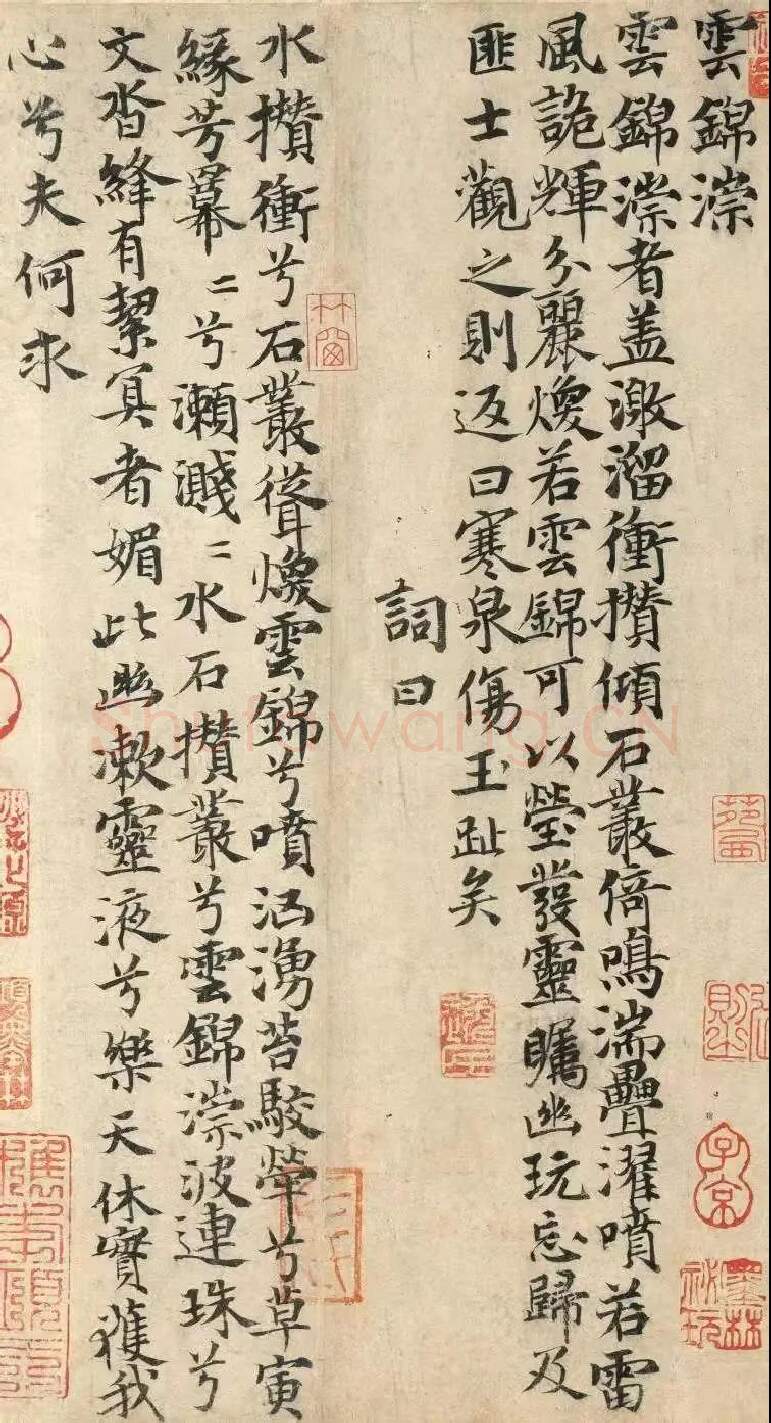 雲錦淙
雲錦淙者盖激溜衝攢傾石叢倚鳴湍疊濯噴若雷
風詭輝分麗煥若雲錦可以瑩發靈矚幽玩忘歸及
匪士觀之則返曰寒泉傷玉趾矣
詞曰
水攢衝兮石叢聳煥雲錦兮噴洶湧苔駮犖兮草夤
緣芳冪〻兮瀨濺〻水石攢叢兮雲錦淙波連珠兮
文沓縫有絜冥者媚此幽漱靈液兮樂天休實獲我
心兮夫何求
子京
墨林
秘玩
Shufawang.CN